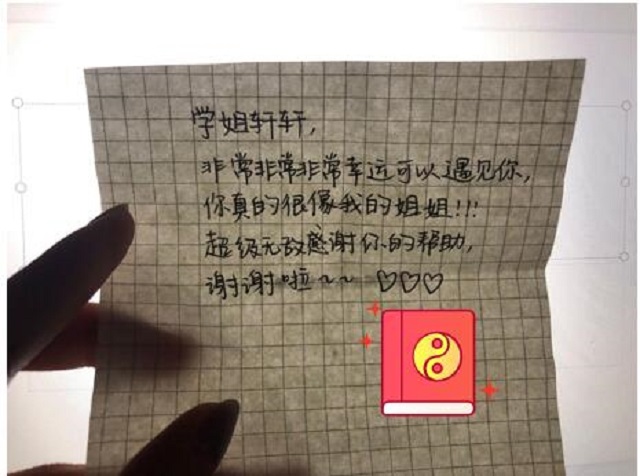 学姐轩轩,
非常非常非常幸运可以遇见你,
你真的很像我的姐姐!!!
超级无敌感谢你的帮助,
谢谢啦~~ ♡♡♡